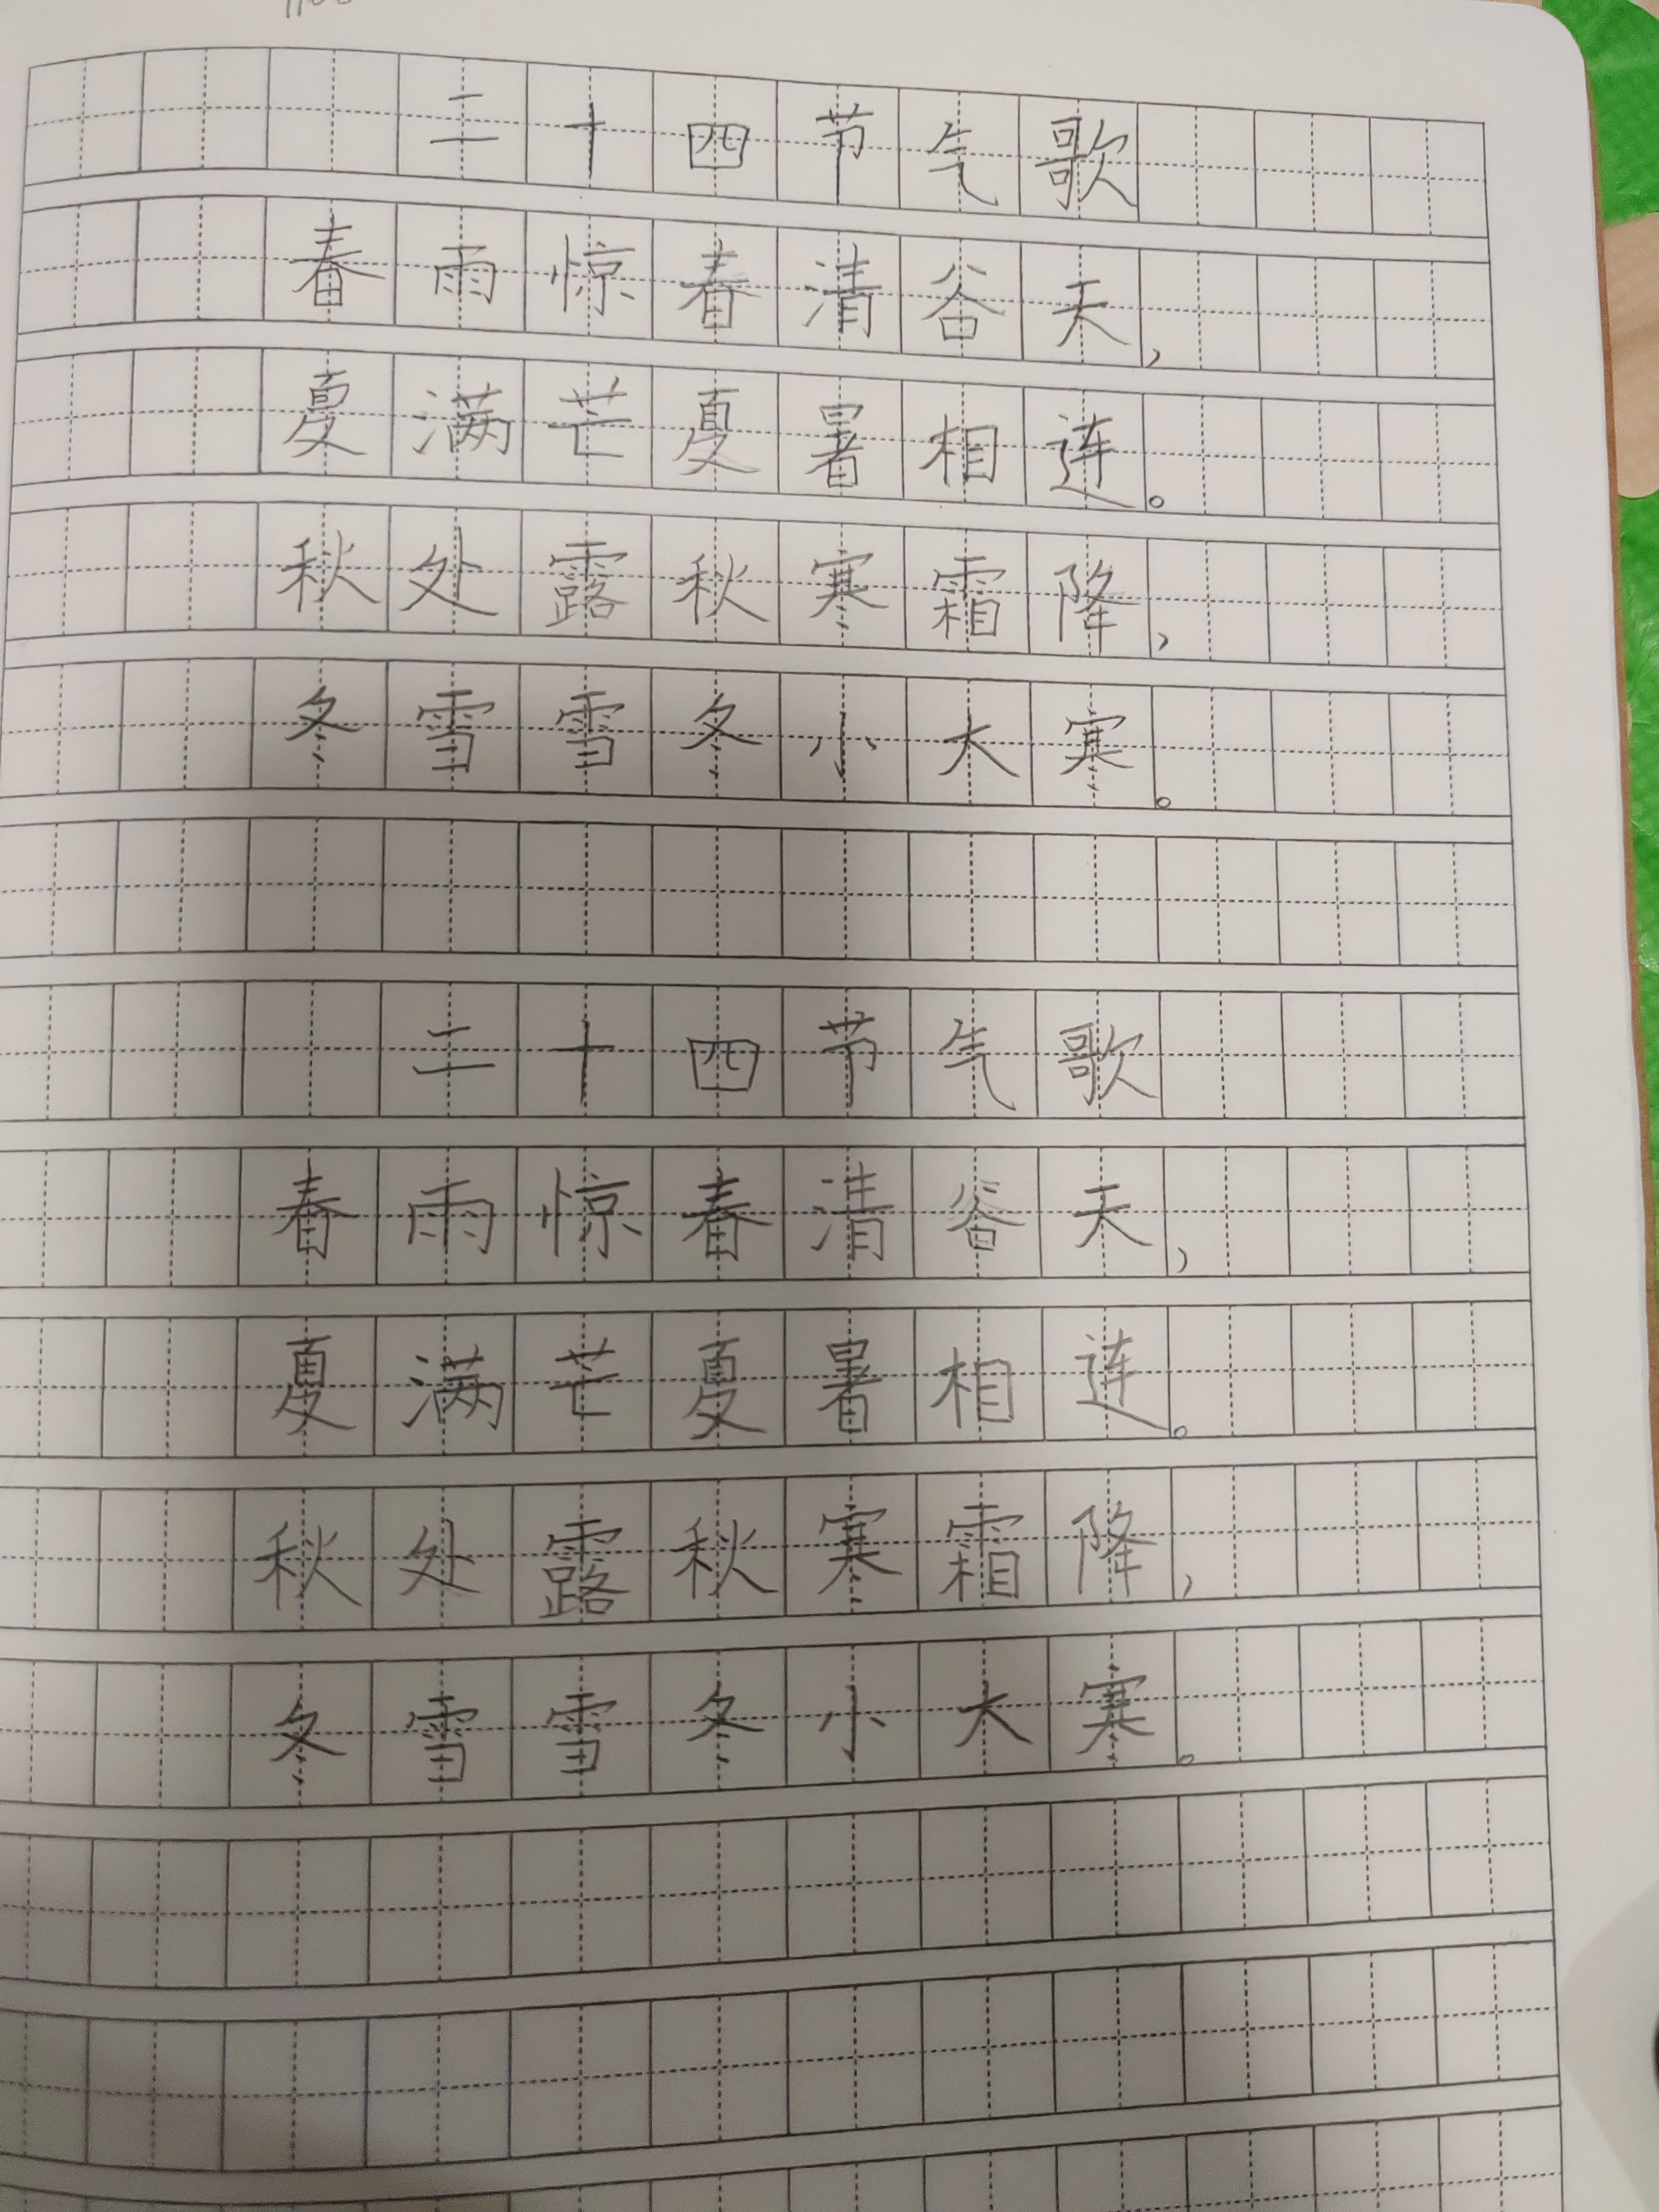 二十四节气歌
春雨惊春清谷天，
夏满芒夏暑相连。
秋处露秋寒霜降，
冬雪雪冬小大寒。
二十四节气歌
春雨惊春清谷天，
夏满芒夏暑相连。
秋处露秋寒霜降，
冬雪雪冬小大寒。